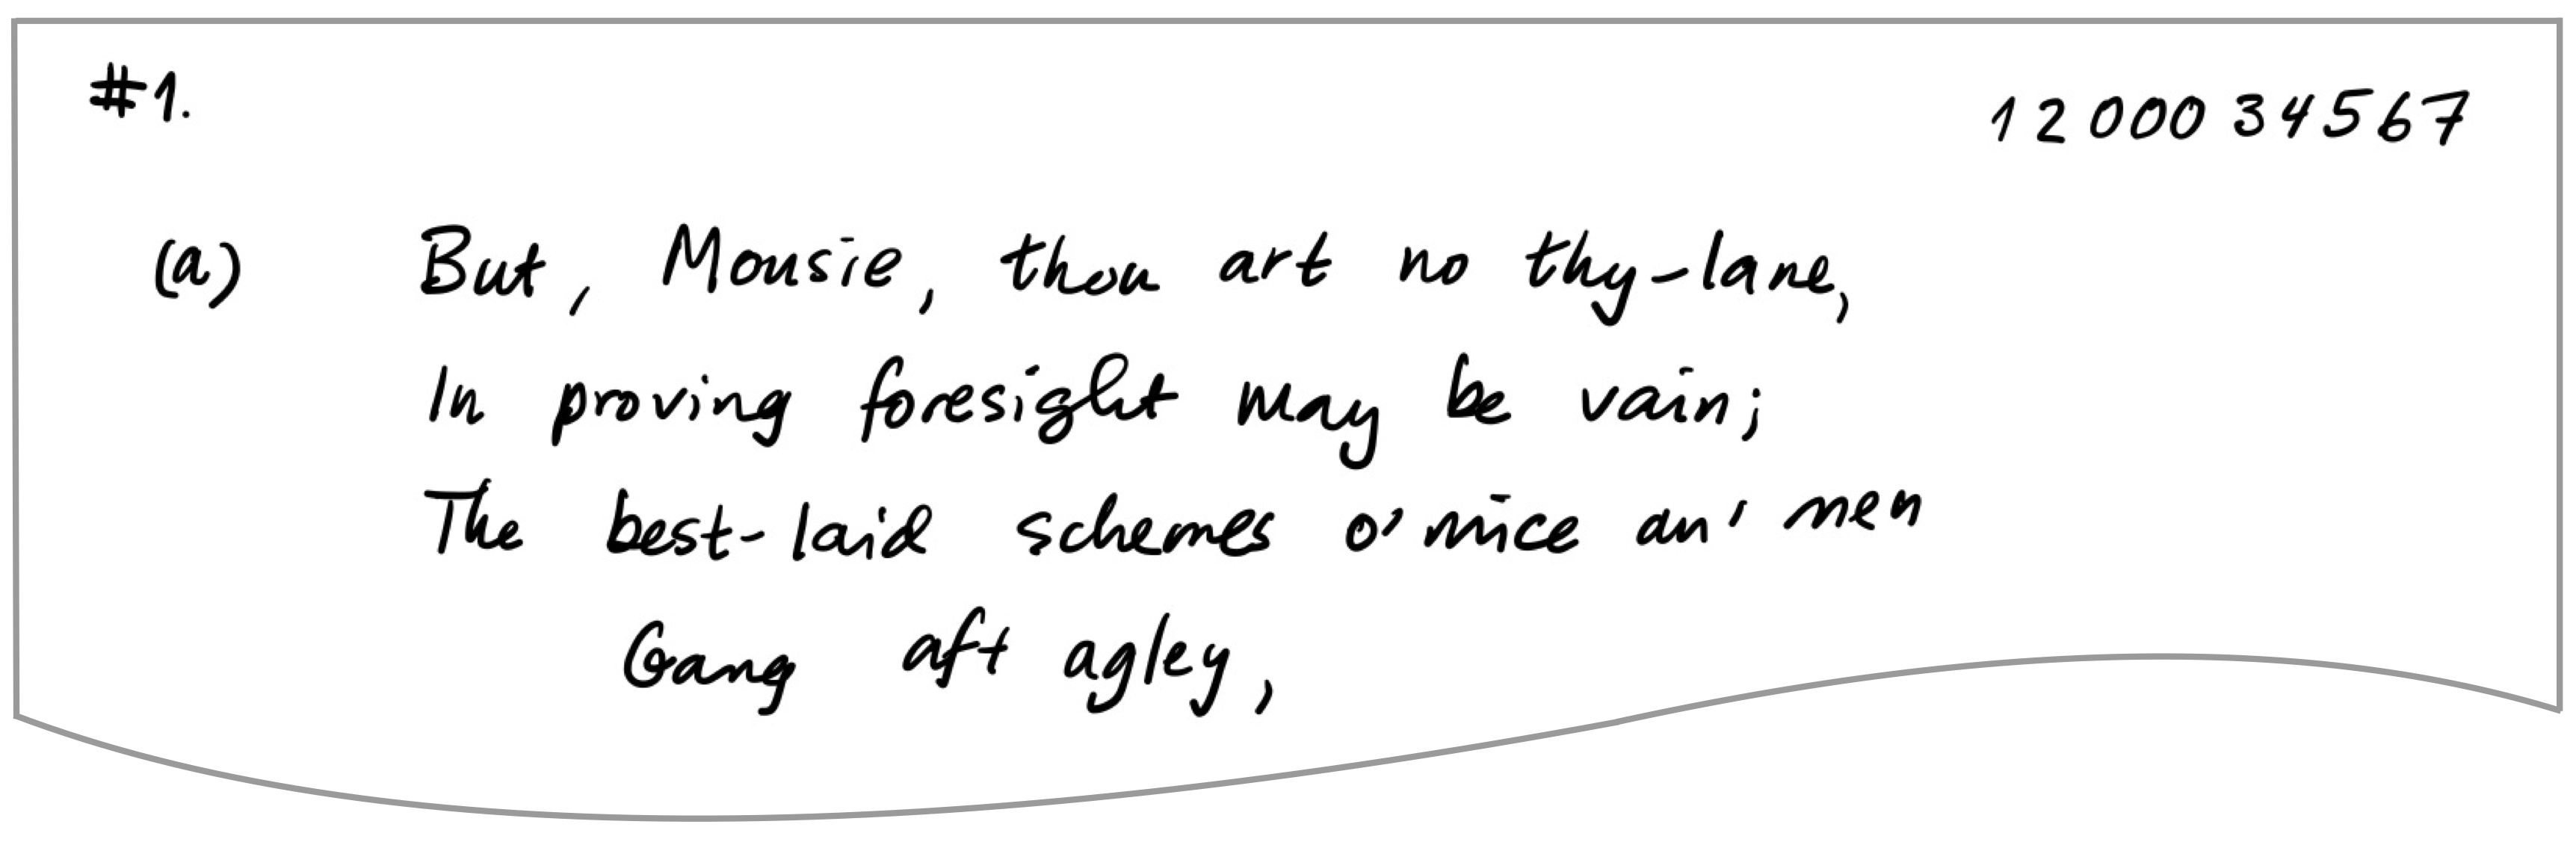 #1.
12 000 34567
(a) But, Mousie, thou art no thy-lane,
In proving foresight may be vain;
The best-laid schemes o' mice an' men
Gang aft agley,